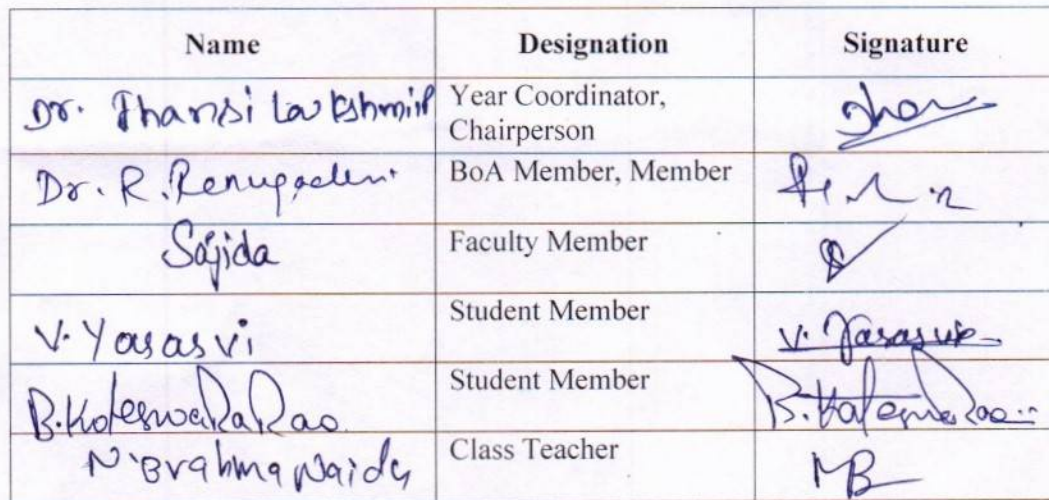 Name Designation Signature
Dr. Jhansi Lakshmi P Year Coordinator,
Chairperson
Dr. R. Renugadevi BoA Member, Member
Sajida Faculty Member
V. Yasasvi Student Member V. Yasasvi
B. Koteswara Rao Student Member B. Koteswara Rao
N. Brahma Naidu Class Teacher NB